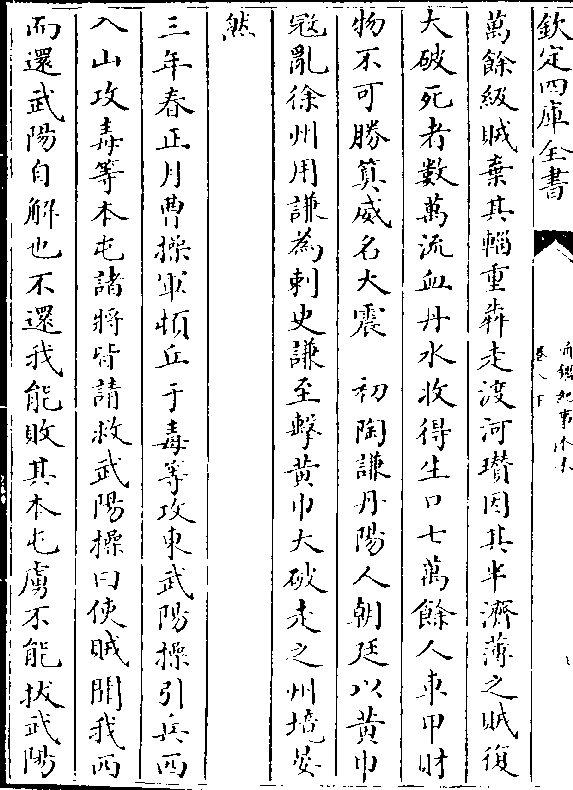 欽定四庫全書
通鑑紀事本末
卷八下
萬餘級賊棄其輜重奔走渡河瓚因其半濟薄之賊復
大破死者數萬流血丹水收得生口七萬餘人車甲財
物不可勝算威名大震　初陶謙丹陽人朝廷以黃巾
寇亂徐州用謙為刺史謙至擊黃巾大破走之州境晏
然
三年春正月曹操軍頓丘于毒等攻東武陽操引兵西
入山攻毒等本屯諸將皆請救武陽操曰使賊聞我西
而還武陽自解也不還我能敗其本屯虜不能拔武陽